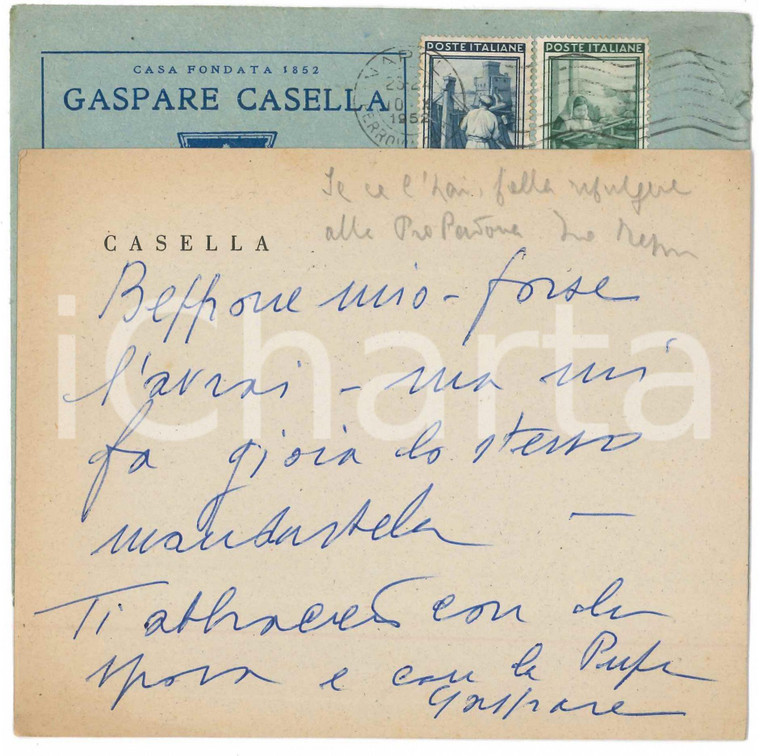 CASA FONDATA 1852
GASPARE CASELLA
POSTE ITALIANE
POSTE ITALIANE
1952
Se ce l'hai, falla rifulgere
alla
CASELLA
Beppone mio - forse
l'avrai - ma mi
fa gioia lo stesso
mandartela -
Ti abbraccio con la
sposa e con la Pupa
Gaspare
iCharta